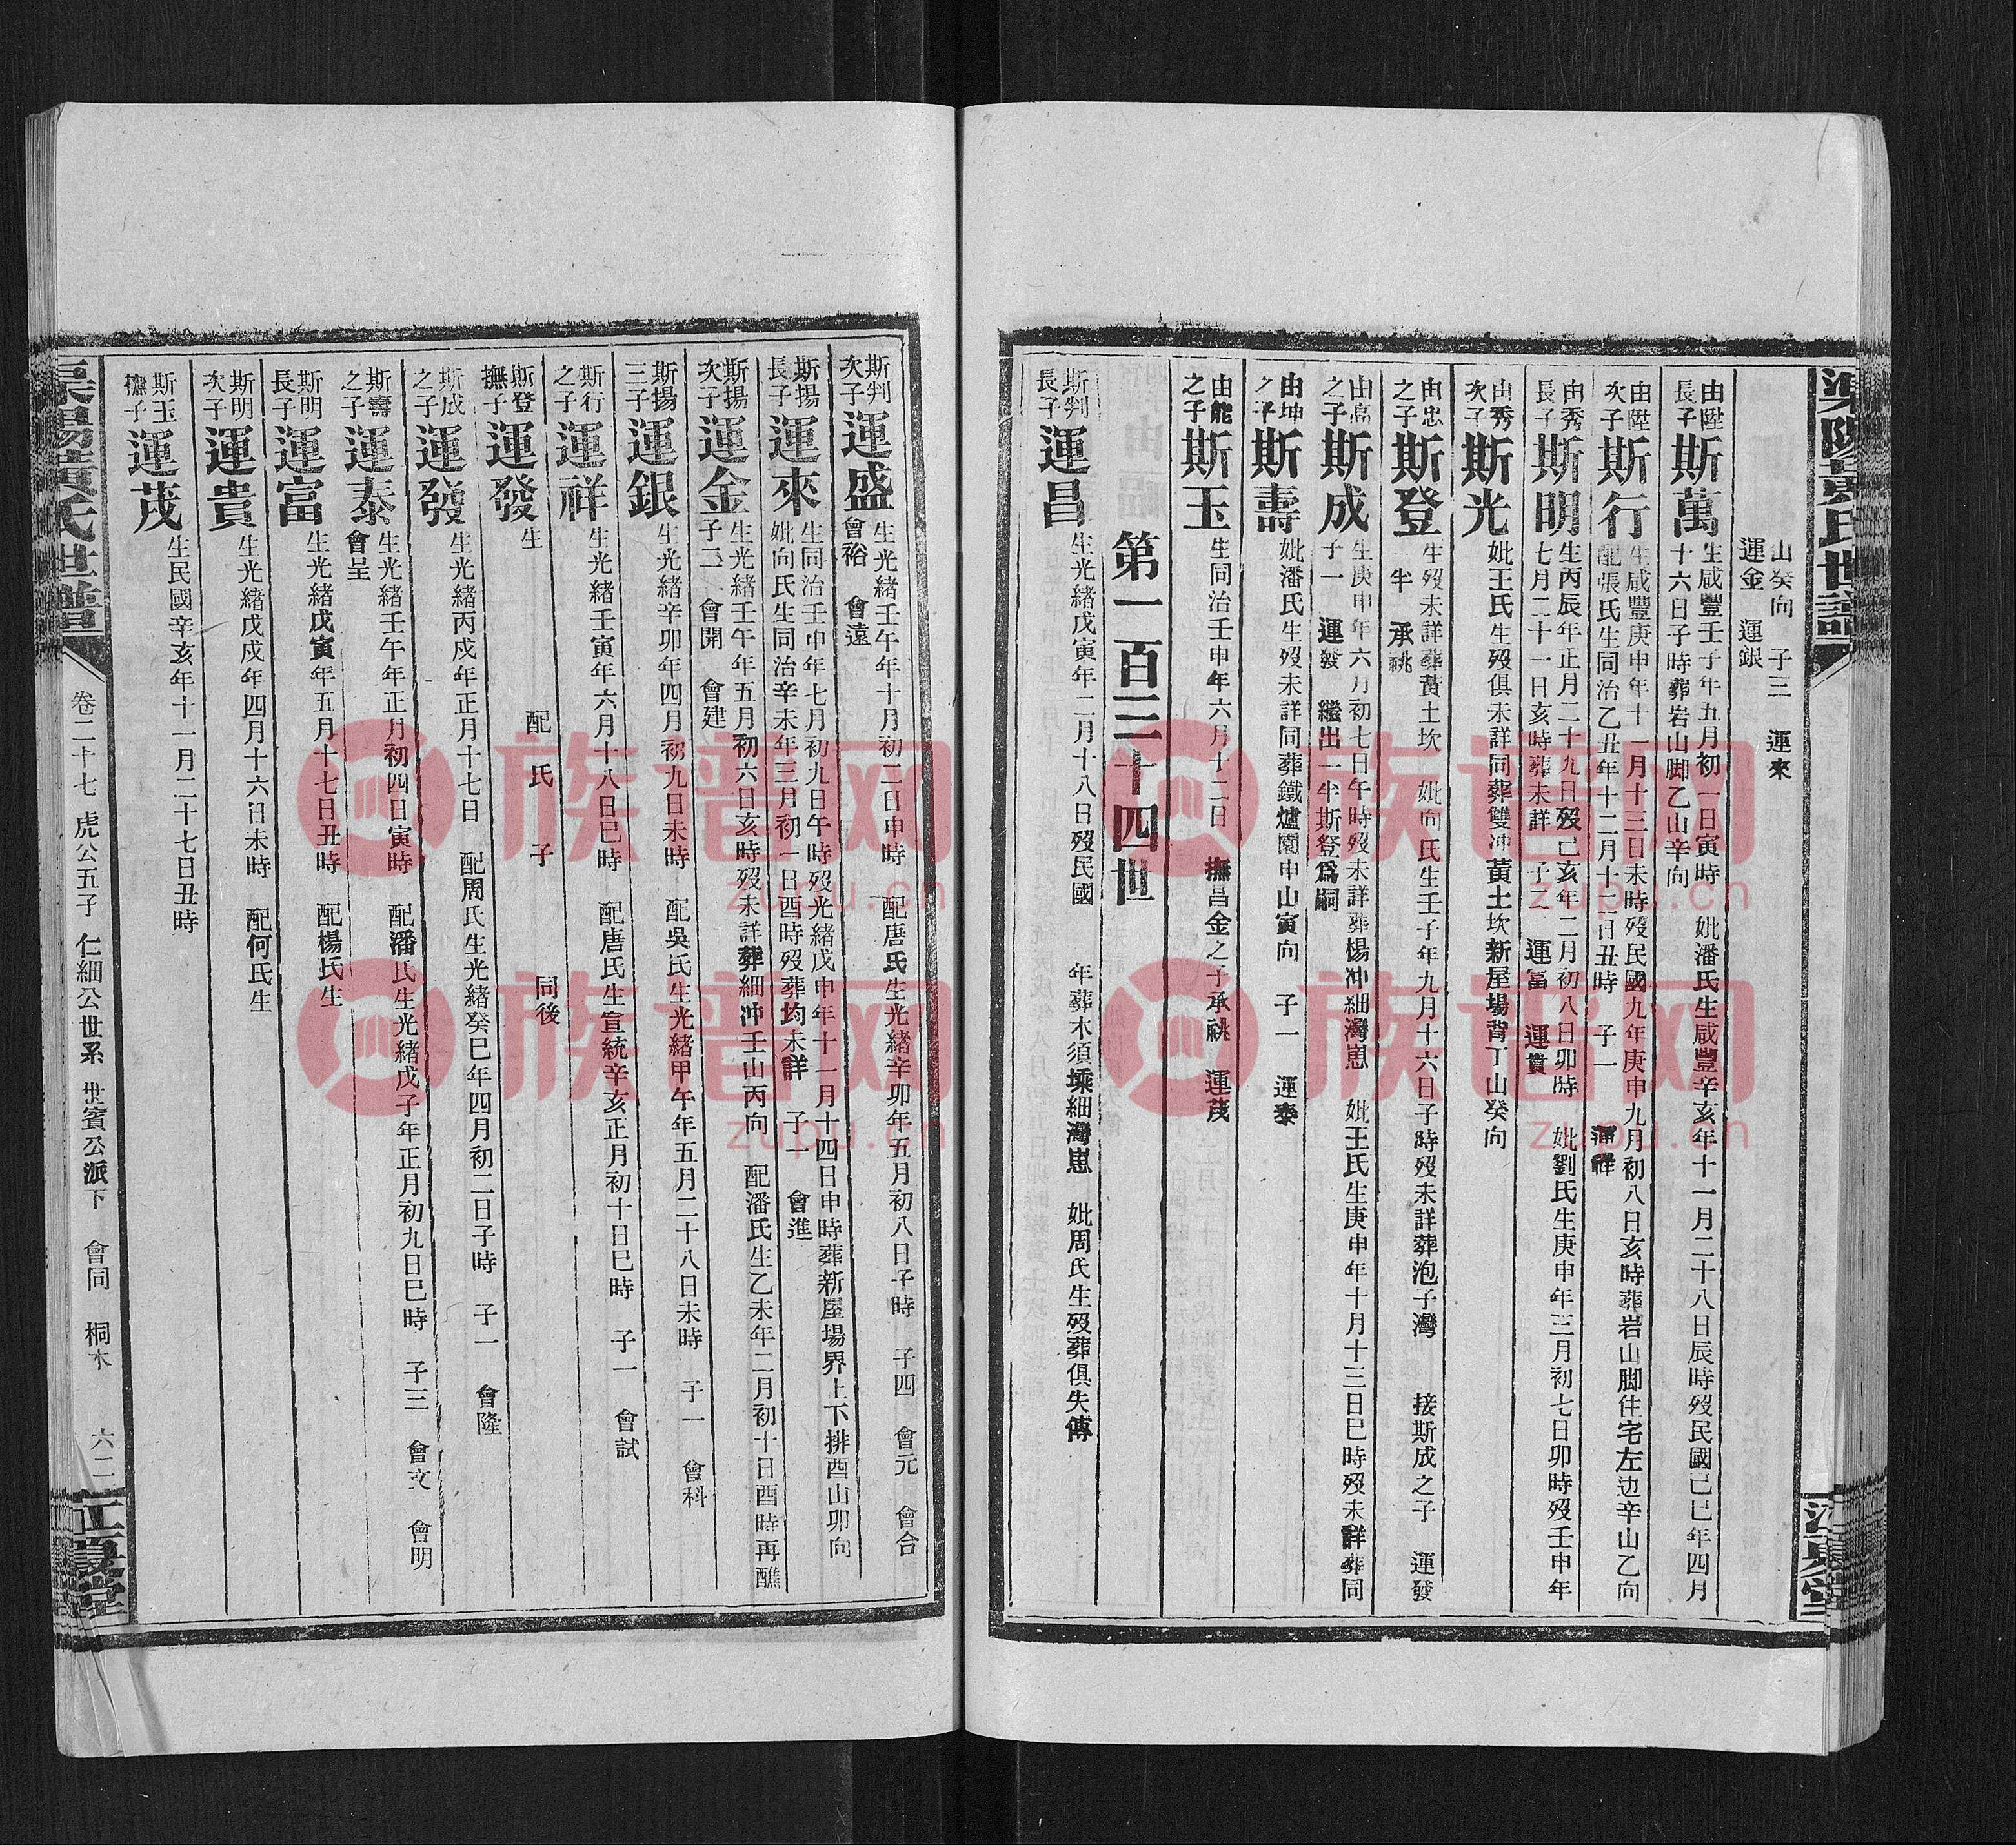 山癸向　子三　運來
運金　運銀
由陞長子 斯萬 生咸豐壬子年五月初一日寅時　妣潘氏生咸豐辛亥年十一月二十八日辰時歿民國己巳年四月
十六日子時葬岩山脚乙山辛向
由陞次子 斯行 生咸豐庚申年十一月十三日未時歿民國九年庚申九月初八日亥時葬岩山脚住宅左边辛山乙向
配張氏生同治乙丑年十二月十二日丑時　子一　運祥
由秀長子 斯明 生丙辰年正月二十九日歿己亥年二月初八日卯時　妣劉氏生庚申年三月初七日卯時歿壬申年
七月二十一日亥時葬未詳　子二　運富　運貴
由秀次子 斯光 妣王氏生歿俱未詳同葬雙冲黃土坎新屋場背丁山癸向
由忠之子 斯登 生歿未詳葬黃土坎　妣向氏生壬子年九月十六日子時歿未詳葬泡子灣　接斯成之子　運發
一半　承祧
由高之子 斯成 生庚申年六月初七日午時歿未詳葬楊冲細灣崽　妣王氏生庚申年十月十三日巳時歿未詳葬同
子一　運發　繼出一半斯登爲嗣
由坤之子 斯壽 妣潘氏生歿未詳同葬鐵爐園申山寅向　子一　運泰
由能之子 斯玉 生同治壬申年六月十二日　撫昌金之子承祧　運茂
第一百三十四世
斯判長子 運昌 生光緒戊寅年二月十八日歿民國　年葬木須壩細灣崽　妣周氏生歿葬俱失傳
斯判次子 運盛 生光緒壬午年十月初二日申時　配唐氏生光緒辛卯年五月初八日子時　子四　會元　會合
會裕　會遠
斯揚長子 運來 生同治壬申年七月初九日午時歿光緒戊申年十一月十四日申時葬新屋場界上下排酉山卯向
妣向氏生同治辛未年三月初一日酉時歿葬均未詳　子一　會進
斯揚次子 運金 生光緒壬午年五月初六日亥時歿未詳葬細冲壬山丙向　配潘氏生乙未年二月初十日酉時再醮
子二　會開　會建
斯揚三子 運銀 生光緒辛卯年四月初九日未時　配吳氏生光緒甲午年五月二十八日未時　子一　會科
斯行之子 運祥 生光緒壬寅年六月十八日巳時　配唐氏生宣統辛亥正月初十日巳時　子一　會試
斯登撫子 運發 生　配　氏　子　同後
斯成之子 運發 生光緒丙戌年正月十七日　配周氏生光緒癸巳年四月初二日子時　子一　會隆
斯壽之子 運泰 生光緒壬午年正月初四日寅時　配潘氏生光緒戊子年正月初九日巳時　子三　會文　會明
會呈
斯明長子 運富 生光緒戊寅年五月十七日丑時　配楊氏生
斯明次子 運貴 生光緒戊戌年四月十六日未時　配何氏生
斯玉撫子 運茂 生民國辛亥年十一月二十七日丑時
黃氏世譜　卷二十七　虎公五子　仁細公世系　世賓公派下　會同　桐木　六二　江夏堂
族谱网
zupu.cn
族谱网
zupu.cn
族谱网
zupu.cn
族谱网
zupu.cn